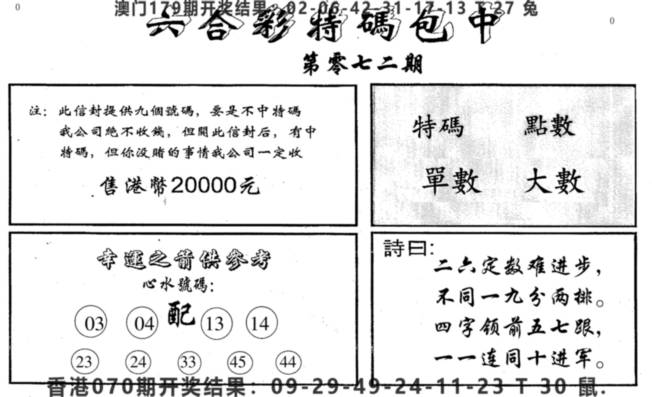 澳门179期开奖结果：02-06-42-31-17-13 T 27 兔
0
六合彩特碼包中
0
第零七二期
注：此信封提供九個號碼，要是不中特碼
我公司絶不收錢，但開此信封后，有中
特碼，但你没賭的事情我公司一定收
售港幣20000元
特碼 點數
單數 大數
幸運之箭供參考
心水號碼：
03 04 配 13 14
23 24 33 45 44
詩曰：
二六定数难进步，
不同一九分两排。
四字领前五七跟，
一一连同十进军。
香港070期开奖结果：09-29-49-24-11-23 T 30 鼠.